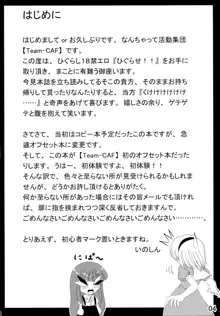 はじめに
はじめまして or お久しぶりです。なんちゃって活動集団
【Team-CAF】です。
この度は、ひぐらし18禁エロ『ひぐらせ!!』をお手に
取り頂き、まことに有難う御座います。
今見本誌を読んで頂いてるそこの貴方、そのままお持ち
帰りして貰ったりなんたりすると、当方『くけけけけけけけ
け』と奇声をあげて喜びます、嬉しさの余り、ゲテゲ
テと腹を抱えて笑います。
さてさて、当初はコピー本予定だったこの本ですが、急
遽オフセット本に変更です。
そして、この本が【Team-CAF】初のオフセット本だった
りします。うーは、初体験ですよ、初体験ですとも。
そんな訳で、色々と至らない所が見受けられるかもしれま
せんが、どうかお許し頂けるとありがたく。
何か至らない所があった場合にはその旨メールでも頂け
れば、隅に指を挟まれつつ深く反省しておきますんで。
ごめんなさいごめんなさいごめんなさいごめんなさい
ごめんなさいごめんなさいごめんなさい……。
とりあえず、初心者マーク置いときますね。
いのしん
にぱ～
04